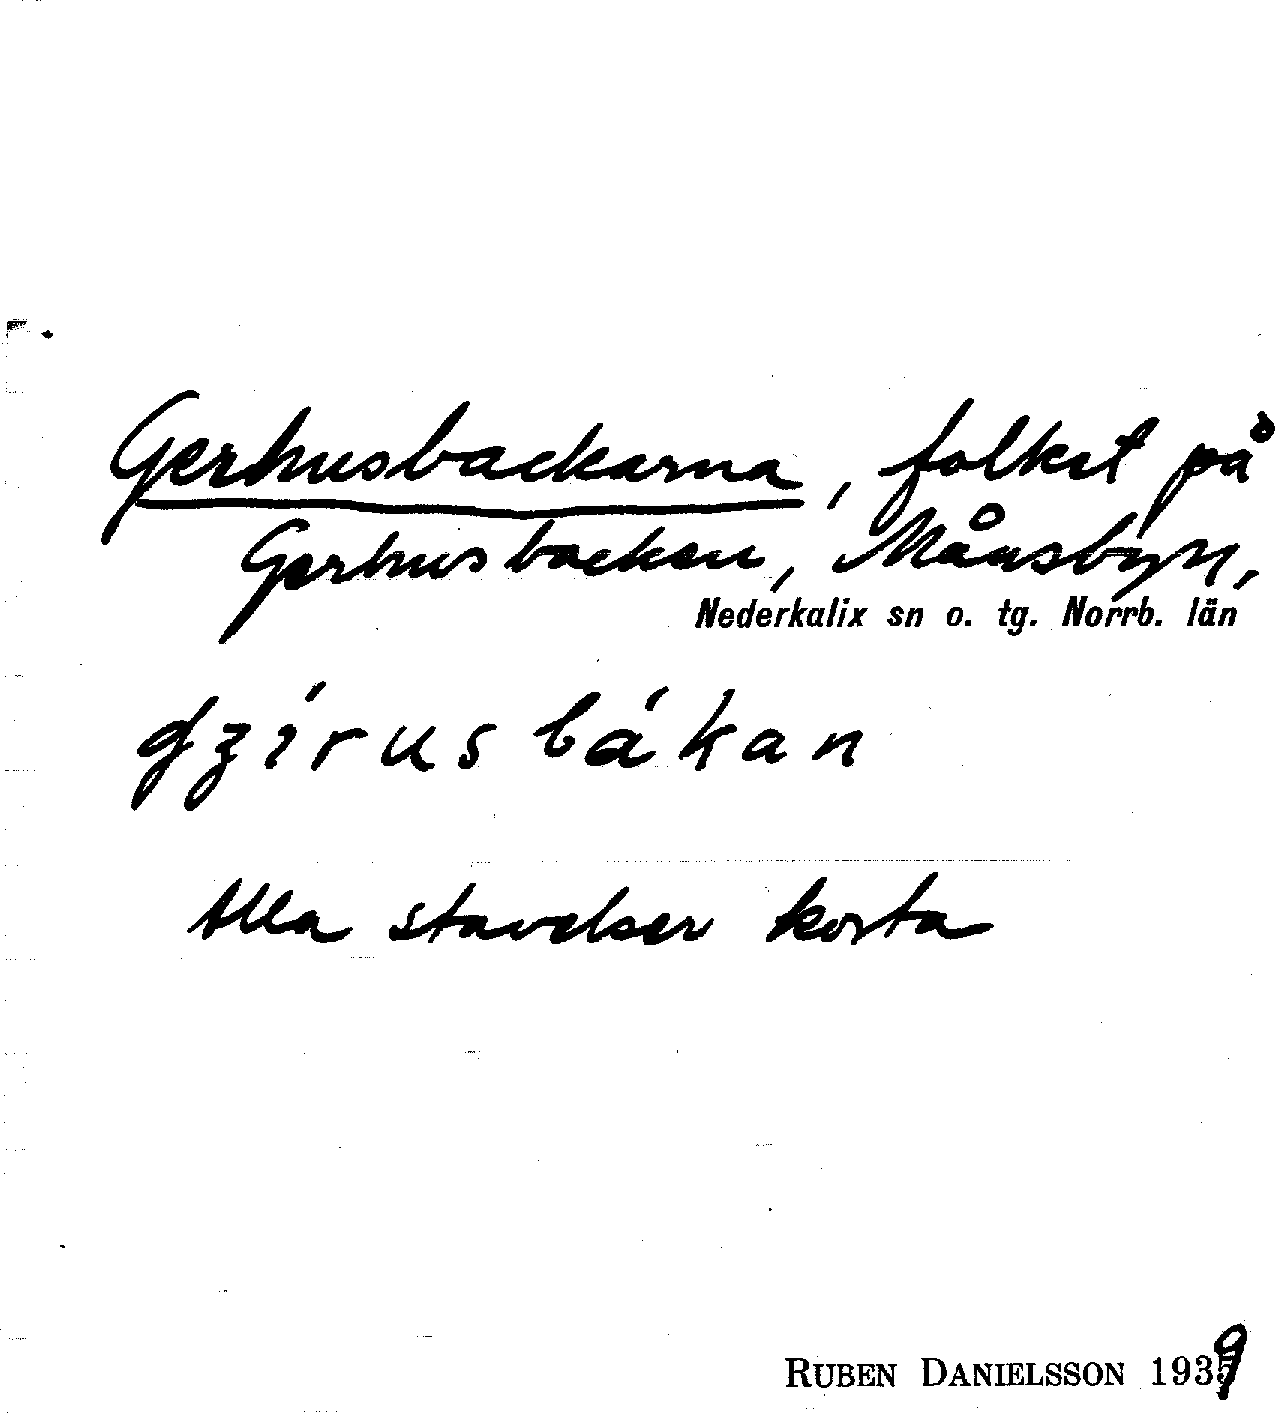 Gerhusbackarna, folket på
Gerhusbacken, Månsbyn,
Nederkalix sn o. tg. Norrb. län
ʤzírusbákan
Alla stavelser korta
RUBEN DANIELSSON 1939